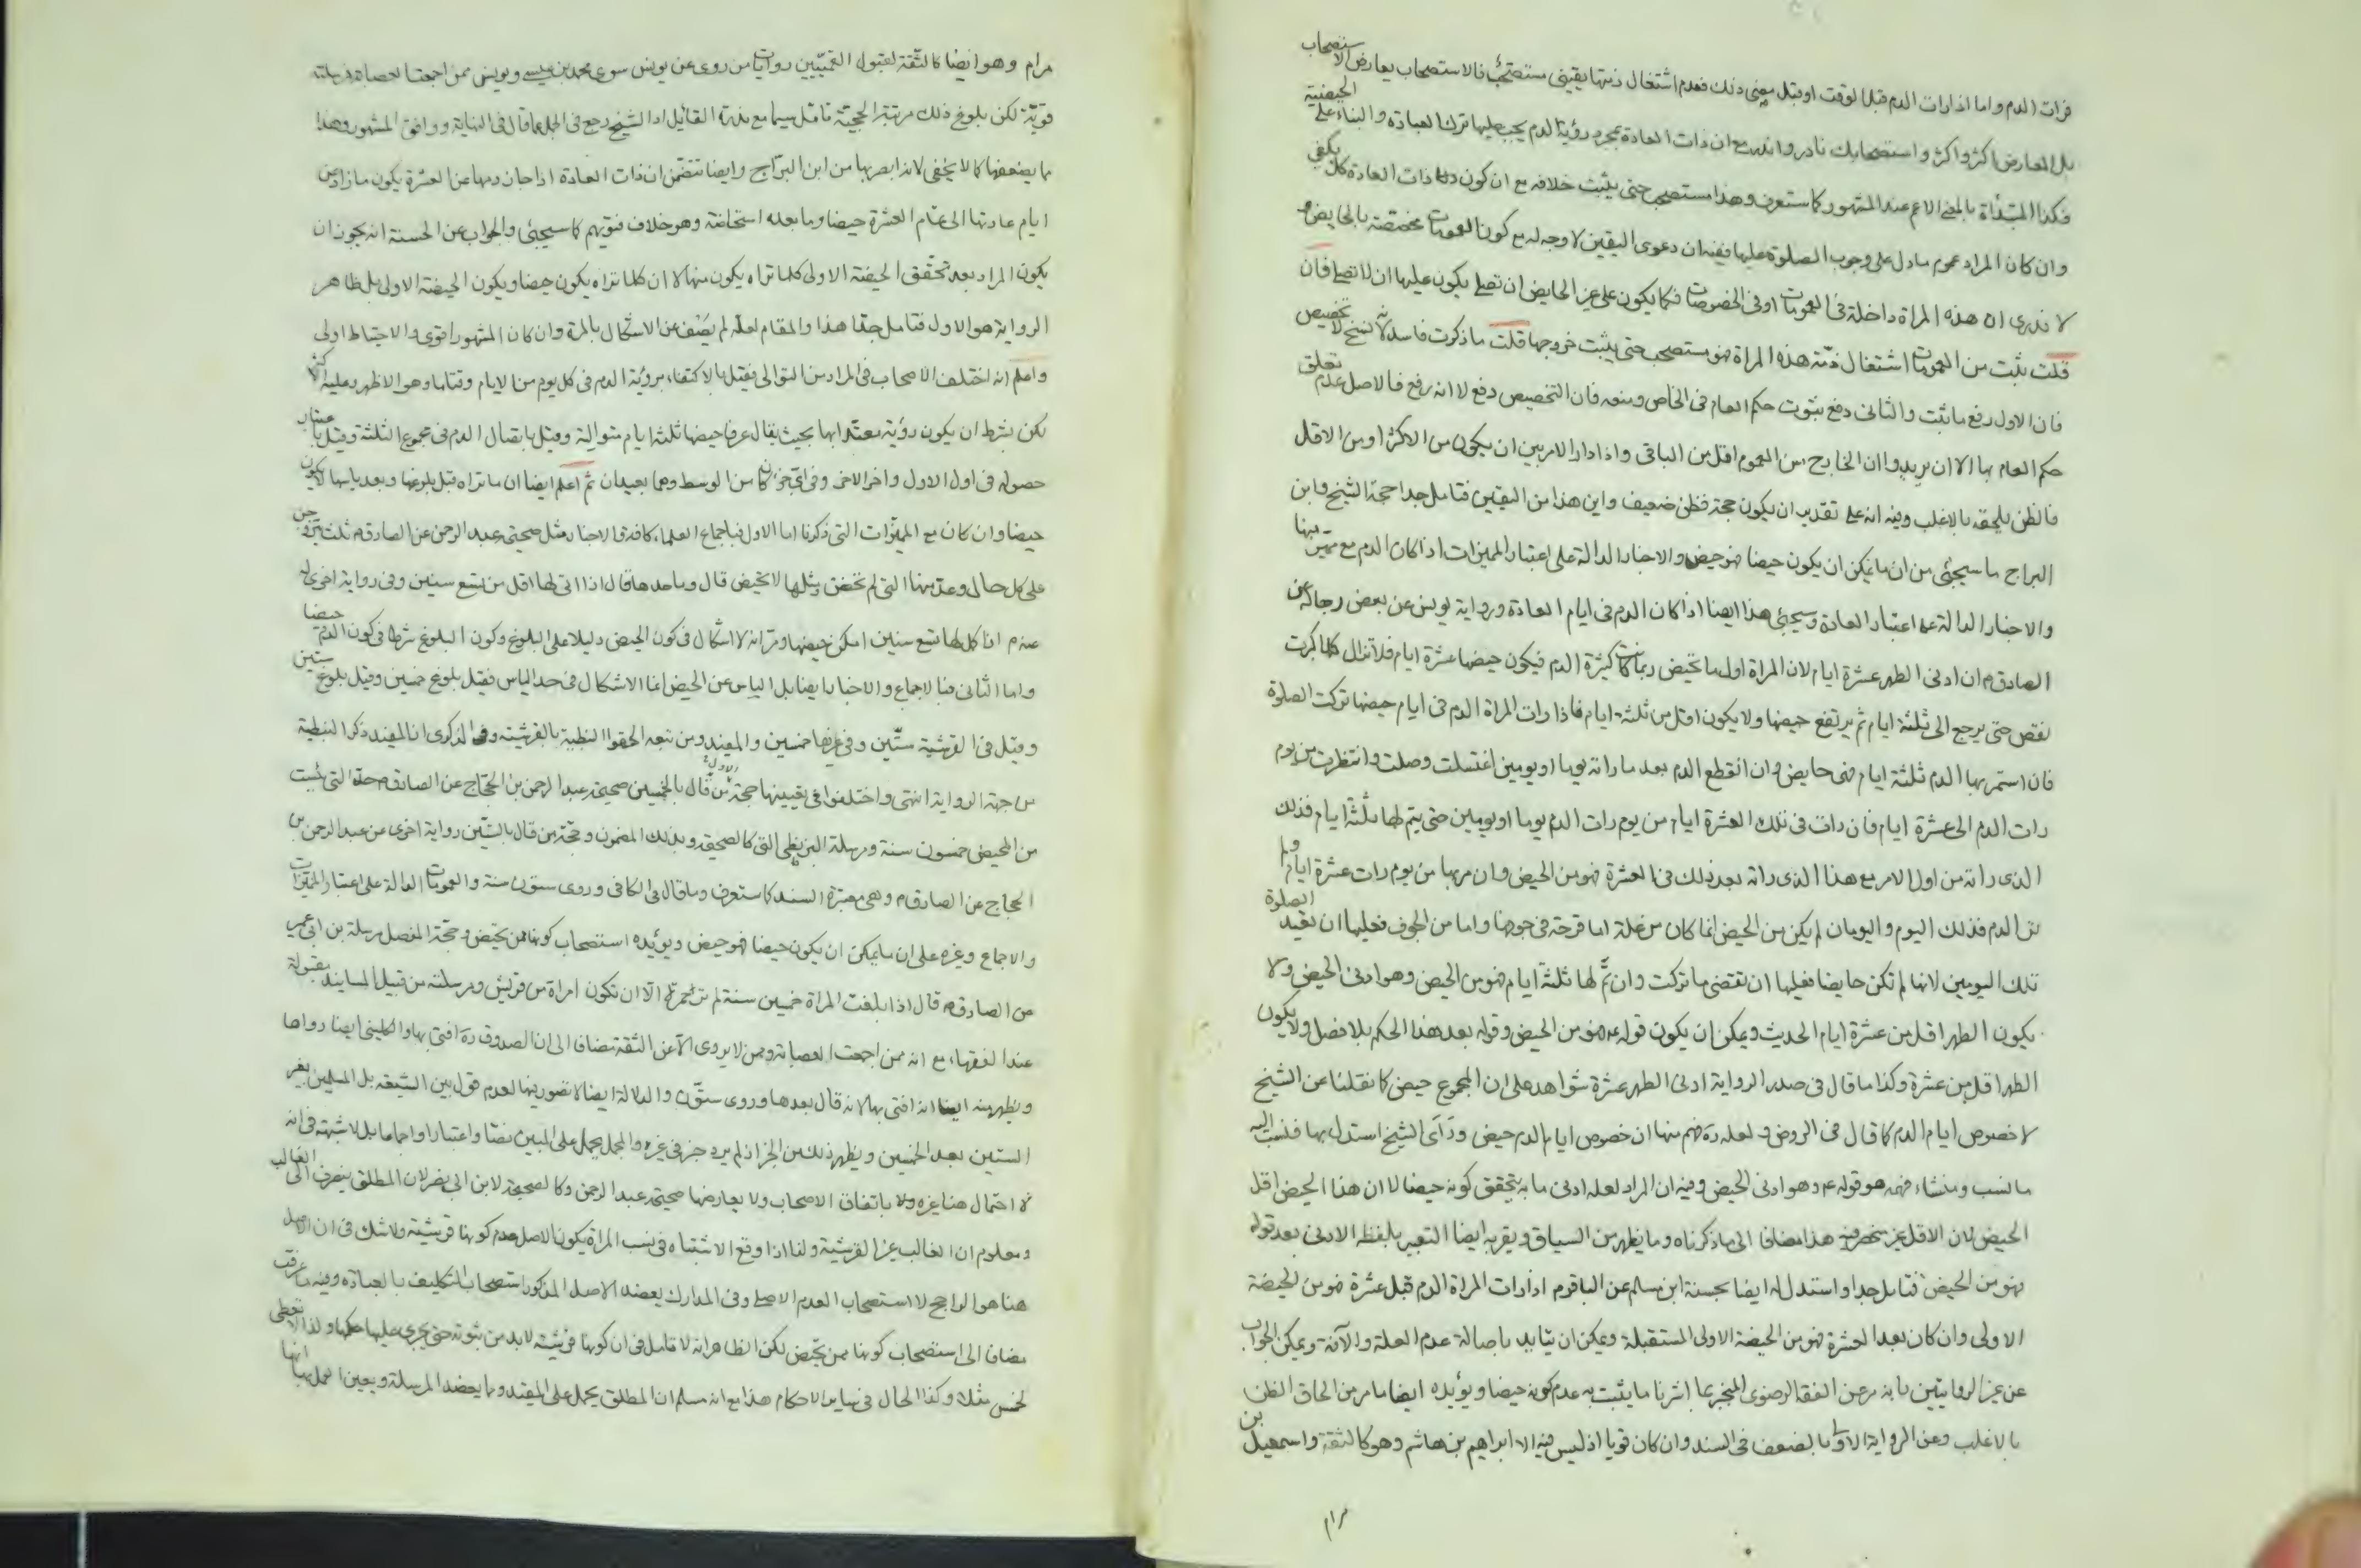 فرات الدم واما اذا رات الدم قبل الوقت او قبل مضى ذلك فعدم اشتغال ذمتها يقينى مستصحب فالاستصحاب يعارض الاستصحاب
بل المعارض اكثر واكثر واستصحابك نادر وانذر مع ان ذات العادة بمجرد رؤية الدم يجب عليها ترك العبادة والبناء على الحيضية
فكذا المبتدأة بالمعنى الاعم عند المشهور كما ستعرف وهذا مستصحب حتى يثبت خلافه مع ان كون ذات العادة كل يكفى
وان كان المراد عموم ما دل على وجوب الصلوة عليها ففيه ان دعوى اليقين لا وجه له مع كون العمومات مختصة بالحايض و
لا ندرى ان هذه المراة داخلة فى العمومات او فى الخصوصات فكما يكون على غير الحايض ان تصلى يكون عليها ان لا تصلى فان
قلت يثبت من العمومات اشتغال ذمة هذه المراة فهو مستصحب حتى يثبت خروجها قلت ما ذكرت فاسد لانه نسخ لا تخصيص
فان الاول رفع ما ثبت والثانى دفع ثبوت حكم العام فى الخاص ومنعه فان التخصيص دفع لا انه رفع فالاصل عدم تعلق
حكم العام بها الا ان يريدوا ان الخارج من العموم اقل من الباقى واذا دار الامر بين ان يكون من الاكثر او من الاقل
فالظن يلحقه بالاغلب وفيه انه على تقدير ان يكون حجة فظن ضعيف واين هذا من اليقين فتامل جدا حجة الشيخ وابن
البراج ما سيجئى من ان ما يمكن ان يكون حيضا فهو حيض والاخبار الدالة على اعتبار المميزات اذا كان الدم مع مميز منها
والاخبار الدالة على اعتبار العادة وسيجئى هذا ايضا اذا كان الدم فى ايام العادة ورواية يونس عن بعض رجاله عن
الصادق م ان ادنى الطهر عشرة ايام لان المراة اول ما تحيض ربما كانت كثيرة الدم فيكون حيضها عشرة ايام فلا تزال كلما كبرت
نقص حتى يرجع الى ثلثة ايام ثم يرتفع حيضها ولا يكون اقل من ثلثة ايام فاذا رات المراة الدم فى ايام حيضها تركت الصلوة
فان استمر بها الدم ثلثة ايام فهى حايض وان انقطع الدم بعد ما راته يوما او يومين اغتسلت وصلت وانتظرت من يوم
رات الدم الى عشرة ايام فان رات فى تلك العشرة ايام من يوم رات الدم يوما او يومين حتى يتم لها ثلثة ايام فذلك
الذى راته من اول الامر مع هذا الذى راته بعد ذلك فى العشرة فهو من الحيض وان مر بها من يوم رات عشرة ايام ولم
تر الدم فذلك اليوم واليومان لم يكن من الحيض انما كان من علة اما قرحة فى جوفها واما من الجوف فعليها ان تعيد الصلوة
تلك اليومين لانها لم تكن حايضا فعليها ان تقضى ما تركت وان تم لها ثلثة ايام فهو من الحيض وهو ادنى الحيض ولا
يكون الطهر اقل من عشرة ايام الحديث ويمكن ان يكون قوله ع فهو من الحيض وقوله بعد هذا الحكم بلا فصل ولا يكون
الطهر اقل من عشرة وكذا ما قال فى صدر الرواية ادنى الطهر عشرة شواهد على ان المجموع حيض كما نقلنا عن الشيخ
لا خصوص ايام الدم كما قال فى الروض ولعله ره فهم منها ان خصوص ايام الدم حيض وراى الشيخ استدل بها فنسب اليه
ما نسب ومنشاء فهمه هو قوله ع وهو ادنى الحيض وفيه ان المراد لعله ادنى ما به يتحقق كونه حيضا لا ان هذا الحيض اقل
الحيض لان الاقل غير منحصر فيه هذا مضافا الى ما ذكرناه وما يظهر من السياق ويقربه ايضا التعبير بلفظ الادنى بعد قوله
فهو من الحيض فتامل جدا واستدل له ايضا بحسنة ابن مسلم عن الباقر م اذا رات المراة الدم قبل عشرة فهو من الحيضة
الاولى وان كان بعد العشرة فهو من الحيضة الاولى المستقبلة ويمكن ان يتايد باصالة عدم العلة والآفة ويمكن الجواب
عن غير الروايتين بانه مر عن الفقه الرضوى المنجبر بما اشرنا ما يثبت به عدم كونه حيضا ويؤيده ايضا ما مر من الحاق الظن
بالاغلب وعن الرواية الاولى بالضعف فى السند وان كان قويا اذ ليس فيه الا ابراهيم بن هاشم وهو كالثقة واسمعيل بن
مرام
مرام وهو ايضا كالثقة لقبول القميين روايات من روى عن يونس سوى محمد بن عيسى ويونس ممن اجمعت العصابة فهى
قوية لكن بلوغ ذلك مرتبة الحجية تامل سيما مع ندرة القائل اذ الشيخ رجع فى الجمل عما قال فى النهاية ووافق المشهور وهذا
ما يضعفها كما لا يخفى لانه ابصر بها من ابن البراج وايضا تتضمن ان ذات العادة اذا جاز دمها عن العشرة يكون ما زاد عن
ايام عادتها الى تمام العشرة حيضا وما بعده استحاضة وهو خلاف فتويهم كما سيجئى والجواب عن الحسنة انه يجوز ان
يكون المراد بعد تحقق الحيضة الاولى كلما تراه يكون منها لا ان كلما تراه يكون حيضا ويكون الحيضة الاولى بل ظاهر
الرواية هو الاول فتامل جدا هذا والمقام لعله لم يصف عن الاشكال بالمرة وان كان المشهور اقوى والاحتياط اولى
واعلم انه اختلف الاصحاب فى المراد من التوالى فقيل بالاكتفاء برؤية الدم فى كل يوم من الايام وقتا ما وهو الاظهر وعليه الاكثر
لكن بشرط ان يكون رؤية معتدا بها بحيث يقال عرفا حيضها ثلثة ايام متوالية وقيل باتصال الدم فى مجموع الثلثة وقيل باعتبار
حصوله فى اول الاول واخر الاخر وفى اى جزء كان من الوسط وهما بعيدان ثم اعلم ايضا ان ما تراه قبل بلوغها وبعد ياسها لا يكون
حيضا وان كان مع المميزات التى ذكرنا اما الاول فباجماع العلماء كافة والاخبار مثل صحيحة عبد الرحمن عن الصادق م ثلث يتزوجن
على كل حال وعد منها التى لم تحض ومثلها لا تحيض قال وما حدها قال اذا اتى لها اقل من تسع سنين وفى رواية اخرى له
عنه م اذا كمل لها تسع سنين امكن حيضها ومر انه لا اشكال فى كون الحيض دليلا على البلوغ وكون البلوغ شرطا فى كون الدم حيضا
واما الثانى فبالاجماع والاخبار ايضا بل الياس عن الحيض انما الاشكال فى حد الياس فقيل بلوغ خمسين وقيل بلوغ ستين
وقيل فى القرشية ستين وفى غيرها خمسين والمفيد ومن تبعه الحقوا النبطية بالقرشية وفى الذكرى ان المفيد ذكر النبطية
من جهة الرواية انتهى واختلفوا فى تعيينها حجة الاول من قال بالخمسين صحيحة عبد الرحمن بن الحجاج عن الصادق م حد التى يئست
من المحيض خمسون سنة ومرسلة البزنطى التى كالصحيحة وبذلك المضمون وحجة من قال بالستين رواية اخرى عن عبد الرحمن بن
الحجاج عن الصادق م وهى معتبرة السند كما ستعرف وما قال فى الكافى وروى ستون سنة والعمومات الدالة على اعتبار المميزات
والاجماع وغيره على ان ما يمكن ان يكون حيضا فهو حيض ويؤيده استصحاب كونها ممن تحيض وحجة المفصل مرسلة بن ابى عمير
عن الصادق م قال اذا بلغت المراة خمسين سنة لم تر حمرة الا ان تكون امراة من قريش ومرسلته من قبيل المسانيد مقبولة
عند الفقهاء مع انه ممن اجمعت العصابة وممن لا يروى الا عن الثقة مضافا الى ان الصدوق ره افتى بها والكلينى ايضا رواها
ويظهر منه ايضا انه افتى بها لانه قال بعدها وروى ستون والدلالة ايضا لا قصور فيها لعدم قول بين الشيعة بل المسلمين بغير
الستين بعد الخمسين ويظهر ذلك من الخبر اذ لم يرد خبر فى غيره والمجمل يحمل على المبين نصا واعتبارا واجماعا بل لا شبهة فى انه
لا احتمال هنا غيره ولا باتفاق الاصحاب ولا يعارضها صحيحة عبد الرحمن وكالصحيحة لابن ابى نصر لان المطلق ينصرف الى الغالب
ومعلوم ان الغالب غير القرشية ولذا اذا وقع الاشتباه فى نسب المراة يكون الاصل عدم كونها قرشية ولا شك فى ان الاصل
هنا هو الراجح لا استصحاب العدم الاصلى وفى المدارك يعضد الاصل المذكور استصحاب التكليف بالعبادة وفيه ما عرفت
مضافا الى استصحاب كونها ممن تحيض لكن الظاهر انه لا تامل فى ان كونها قرشية لابد من ثبوته حتى يجرى عليها حكمها ولذا لا تعطى
الخمس مثلا وكذا الحال فى ساير الاحكام هذا مع انه مسلم ان المطلق يحمل على المقيد ومما يعضد المرسلة ويعين العمل بها انها